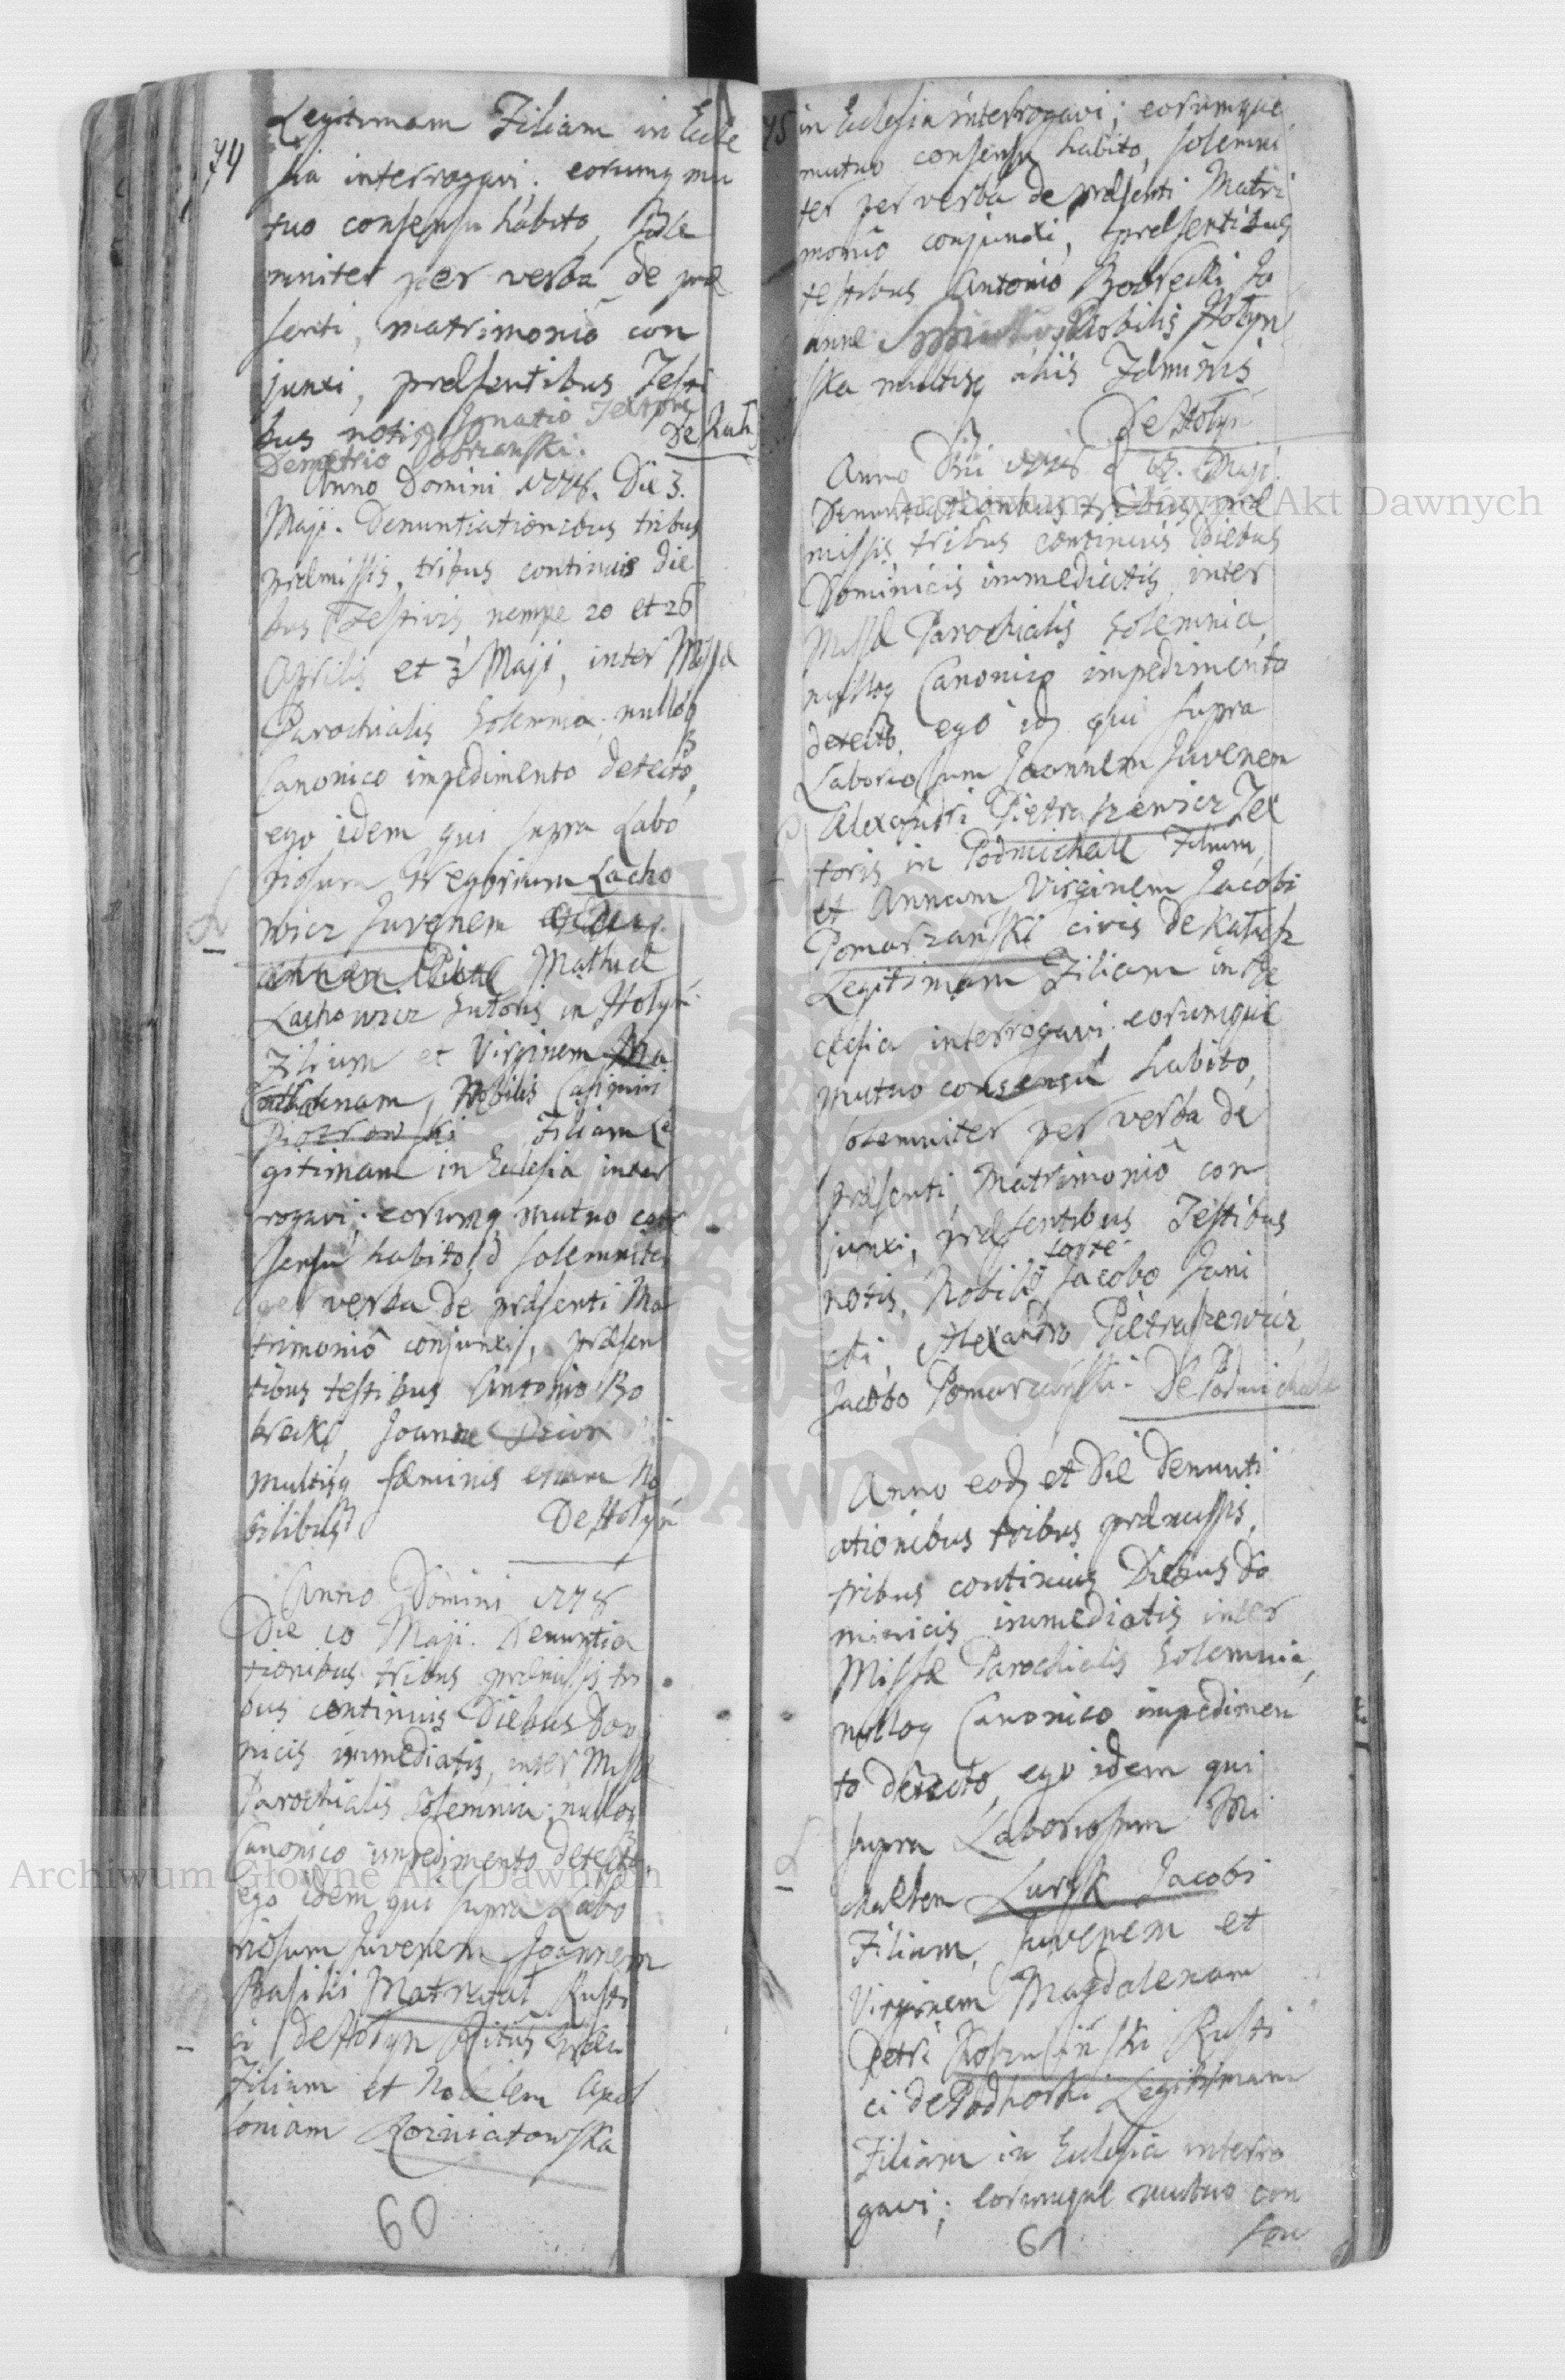 74
Legitimam Filiam in Eccle
sia interrogavi. eorumq mu
tuo consensu habito, Sole
mniter per verba de præ
senti, matrimoniô con
junxi, præsentibus Testi
bus notis Ignatio Textore
Demetrio Dobrzanski.
De Kał
Anno Domini 1778. Die 3.
Maji. Denuntiationibus tribus
præmissis, tribus continuis die
bus Festivis, nempe 20 et 26
Aprilis et 3 Maji, inter Missæ
Parochialis Solemnia, nulloq
Canonico impedimento detecto,
ego idem qui supra Labo
riosum Gregorium Lacho
wicz Juvenem
Mathiæ
Lachowicz Sutoris in Hołyń
Filium et Virginem
Catharinam, Nobilis Casimiri
Piotrowski Filiam Le
gitimam in Eclesia inter
rogavi; eorumq mutuo con
sensu habito, solemniter
per verba de præsenti Ma
trimoniô conjunxi, præsen
tibus testibus Antonio Bo
brecki, Joanne
multisq fæminis etiam No
bilibus
De Hołyń
Anno Domini 1778
Die 10 Maji. Denuntia
tionibus tribus præmissis tri
bus continuis Diebus Domi
nicis immediatis, inter Missæ
Parochialis Solemnia, nulloq
Canonico impedimento detecto,
ego idem qui supra Labo
riosum Juvenem Joannem
Basilii Rusti
ci de Hołyn Ritûs
Filium et Nobilem Apol
loniam Rozniatowska
60
75
in Eclesia interrogavi; eorumque
mutuo consensu habito, solemni
ter per verba de præsenti Matri
moniô conjunxi, præsentibus
testibus Antonio Bobrecki Jo
anne Nobilis Hołyn
ska multisq aliis Fæminis
De Hołyń
Anno Dñi 1778 d 17. Maji.
Denuntiationibus tribus præ
missis tribus continuis Diebus
Dominicis immediatis inter
Missæ Parochialis Solemnia,
nulloq Canonico impedimento
detecto, ego id qui supra
Laboriosum Joannem Juvenem
Alexandri Pietraszewicz Tex
toris in Podmichale Filium,
et Annam Virginem Jacobi
Pomarzański civis de Kałusz
Legitimam Filiam in Ec
clesia interrogavi eorumque
mutuo consensu habito,
solemniter per verba de
præsenti Matrimoniô con
junxi, præsentibus Testibus
notis, Nobili Jacobo Jani
cki, Alexandro Pietraszewicz,
Jacobo Pomarzański. De Podmichale
Anno eod et Die Denunti
ationibus tribus præmissis,
tribus continuis Diebus Do
minicis immediatis inter
Missæ Parochialis Solemnia,
nulloq Canonico impedimen
to detecto, ego idem qui
supra Laboriosum Mi
chaelem Jacobi
Filium, Juvenem et
Virginem Magdalenam
Petri Rusti
ci de Podhorki Legitimam
Filiam in Eclesia interro
gavi; eorumque mutuo con
61
sen
Archiwum Główne Akt Dawnych
Archiwum Główne Akt Dawnych